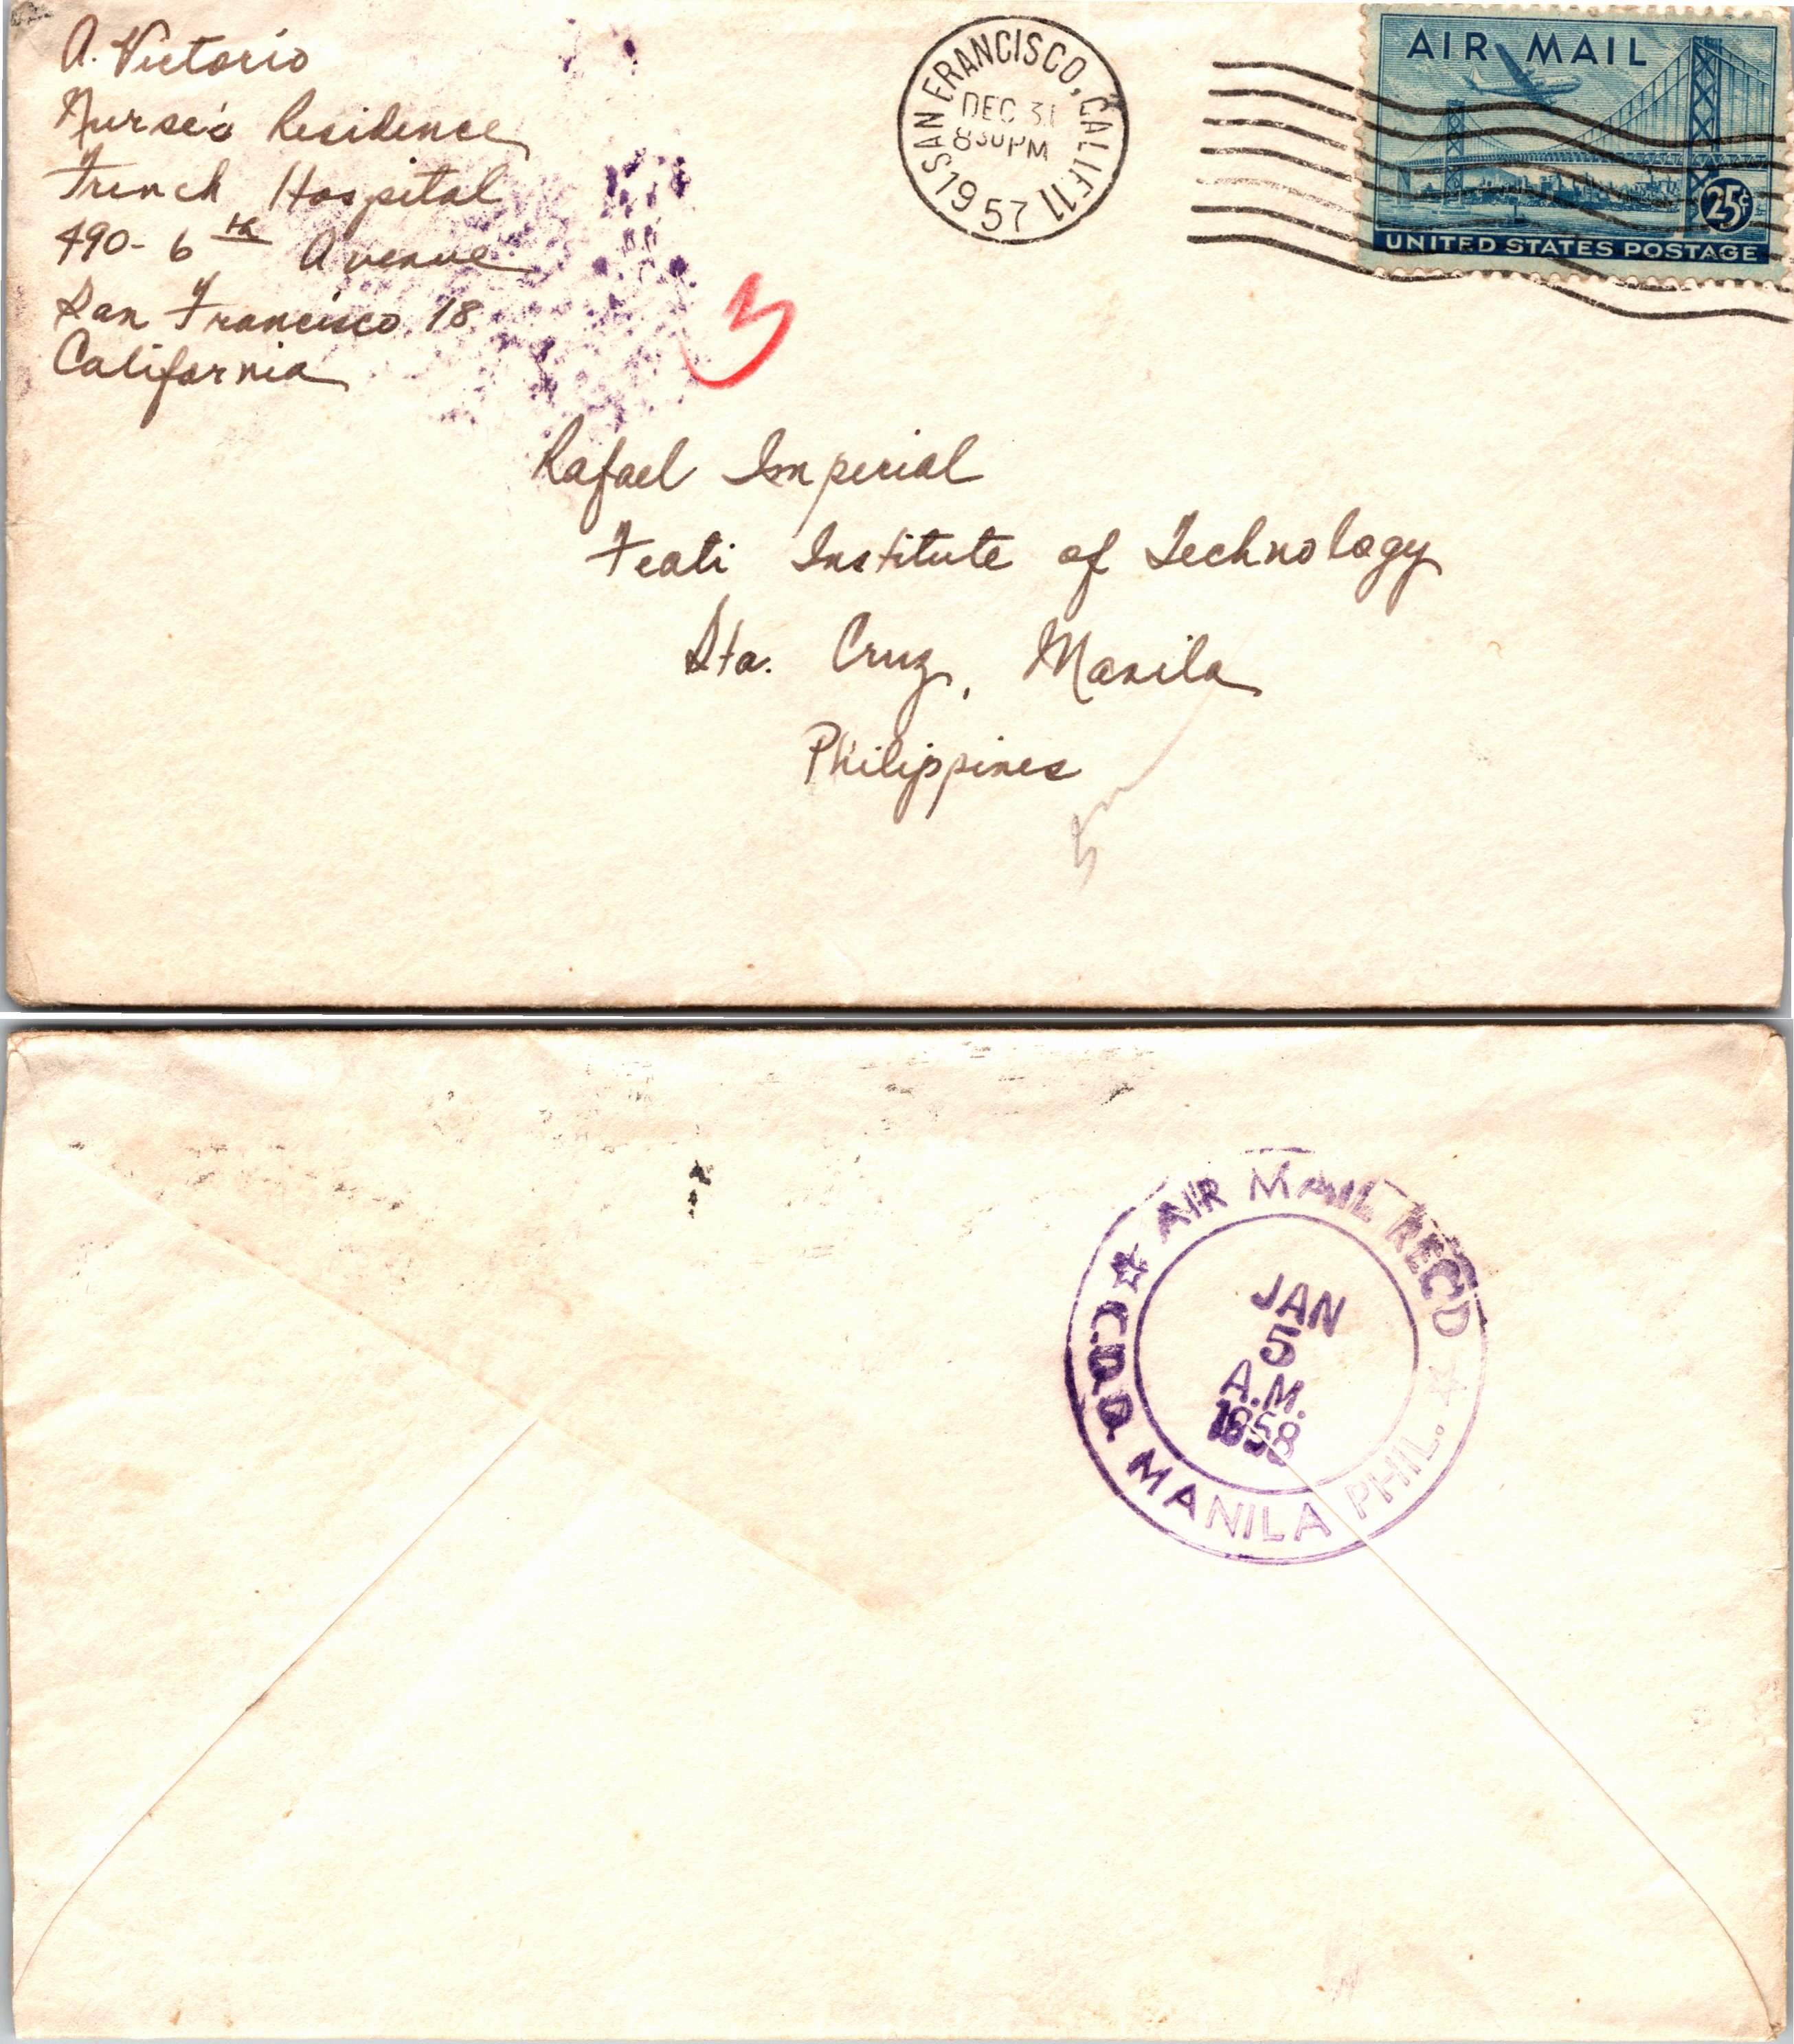 A. Victorio
Nurse's Residence
French Hospital
490- 6th Avenue
San Francisco 18
California
SAN FRANCISCO, CALIF. 11
DEC 31
830 PM
1957
AIR MAIL
25¢
UNITED STATES POSTAGE
3
Rafael Imperial
Feati Institute of Technology
Sta. Cruz, Manila
Philippines
AIR MAIL REC'D
JAN
5
A.M.
1958
MANILA PHIL.